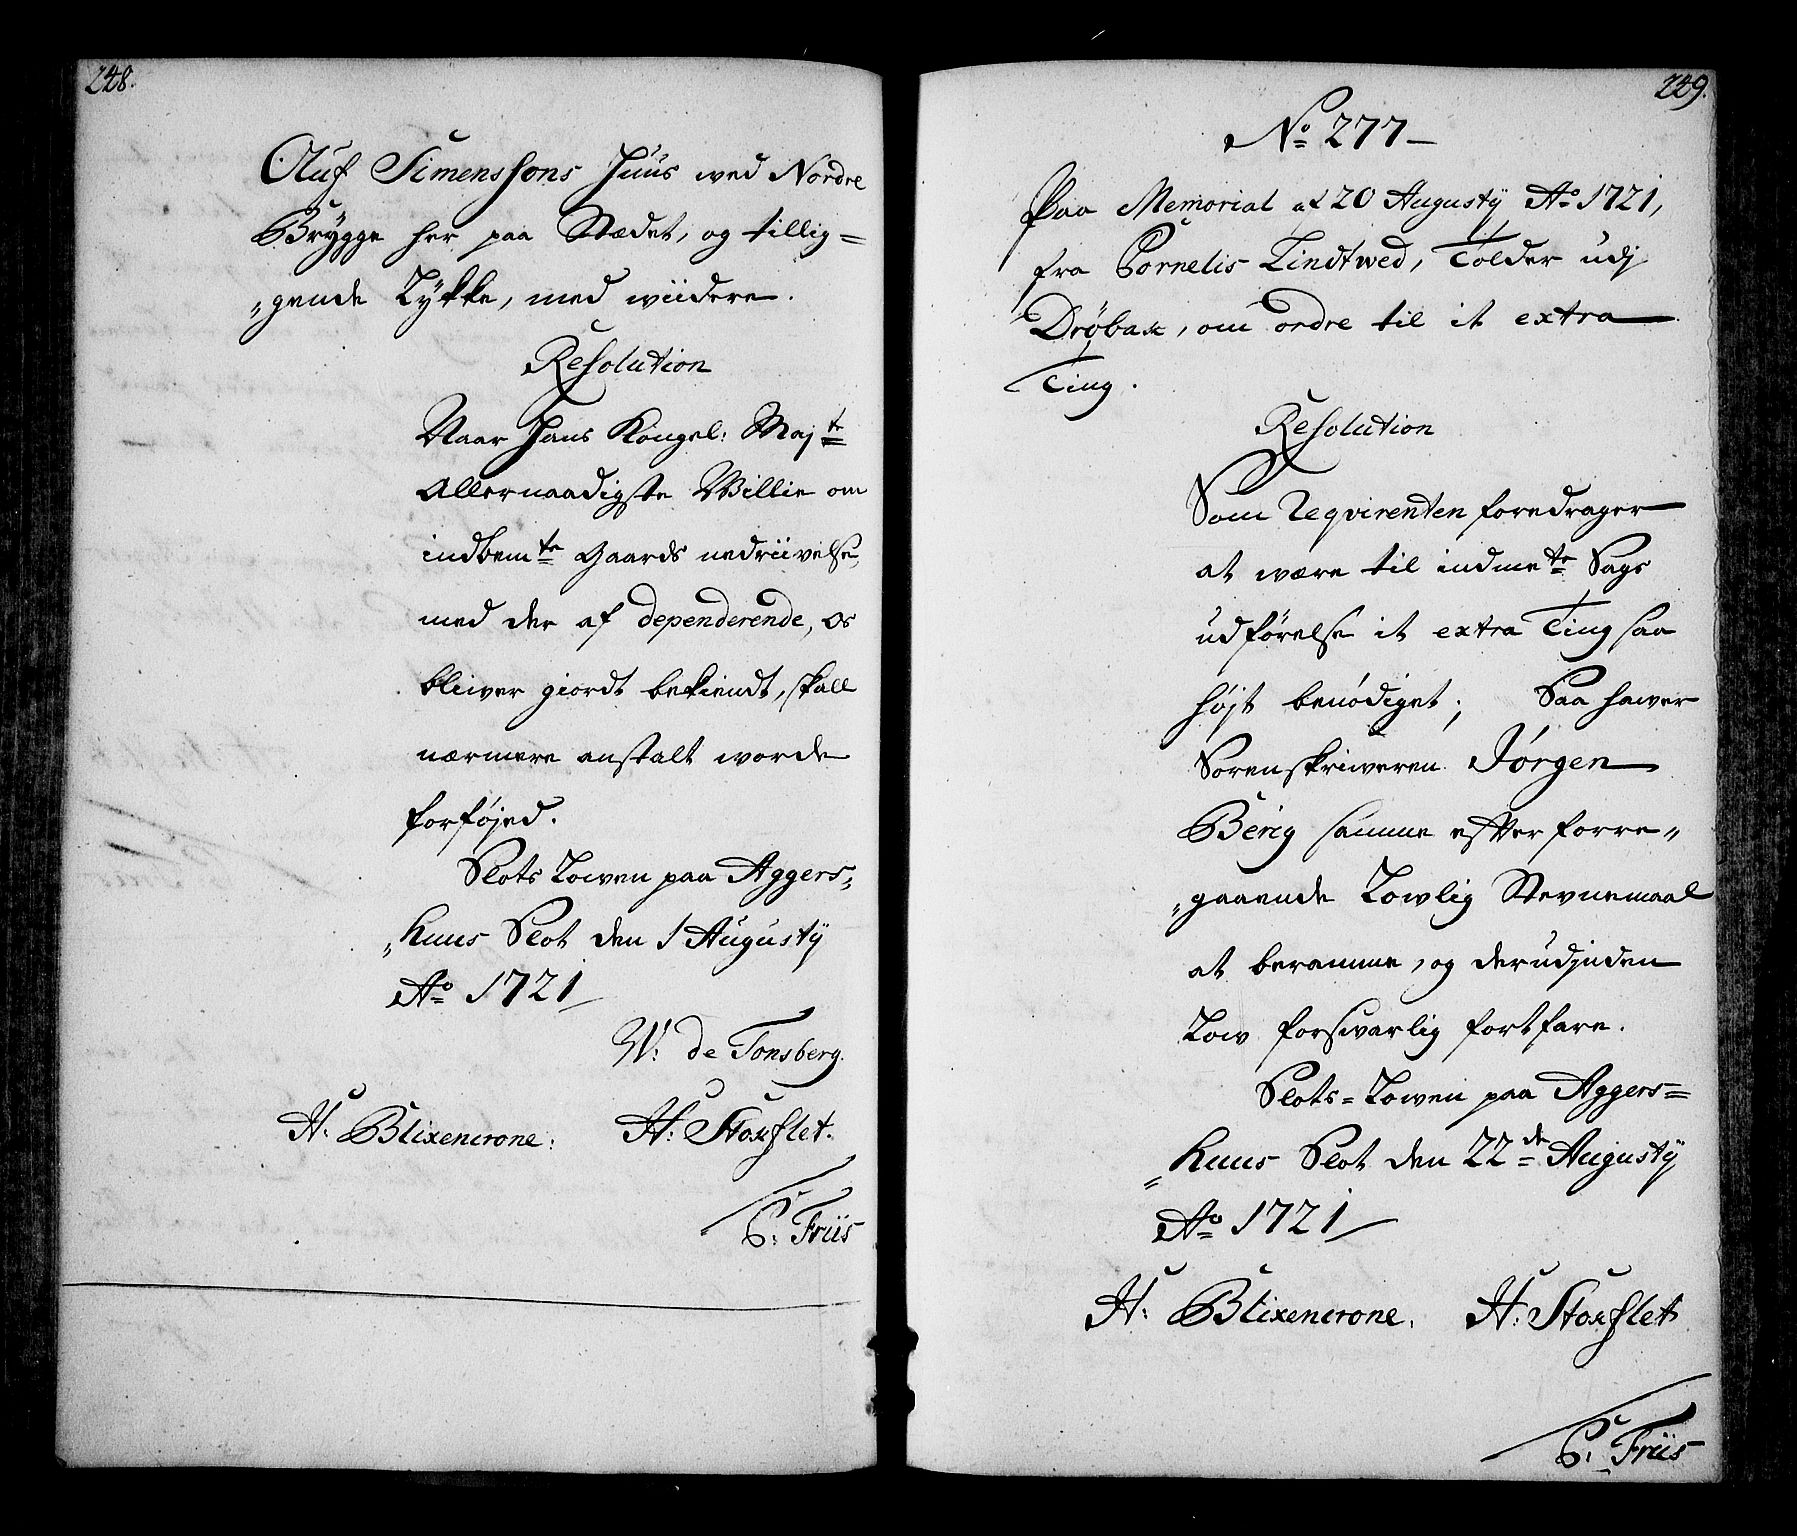 248.
Oluf Simenssons Huus wed Nordre
Brygge her paa Stædet, og tillig=
"gende Lykke, med wiidere.
Resolution
Naar Hans Kongel: Maj<sup>te</sup>
Allernaadigste Willie om
indbem<sup>te</sup> Gaards nedriivelse,
med der af dependerende, os
bliiver giordt bekiendt, skall
nærmere anstalt worde
forføjed.
Slots Lowen paa Aggers,,
"huus Slot den 1 Augustij
A<sup>o</sup> 1721
W: de Tonsberg.
H: Blixencrone. H: Stockflet.
C: Friis
249.
N<sup>o</sup> 277
Paa Memorial af 20 Augustij A<sup>o</sup> 1721,
fra Cornelis Lindtwed, Tolder udj
Drøbak, om ordre til it extra
Ting.
Resolution
Som Reqvirenten foredrager
at være til indme<sup>te</sup> Sags
udførelse it extra Ting saa
højt benødiget; Saa hawer
Sorenskriweren Jørgen
Berig samme efter forre,,
"gaaende Lowlig Stevnemaal
at beramme, og derudjnden
Low forswarlig fortfare.
Slots=Lowen paa Aggers=
"huus Slot den 22<sup>de</sup> Augustij
A<sup>o</sup> 1721
H: Blixencrone. H: Stockflet
C: Friis